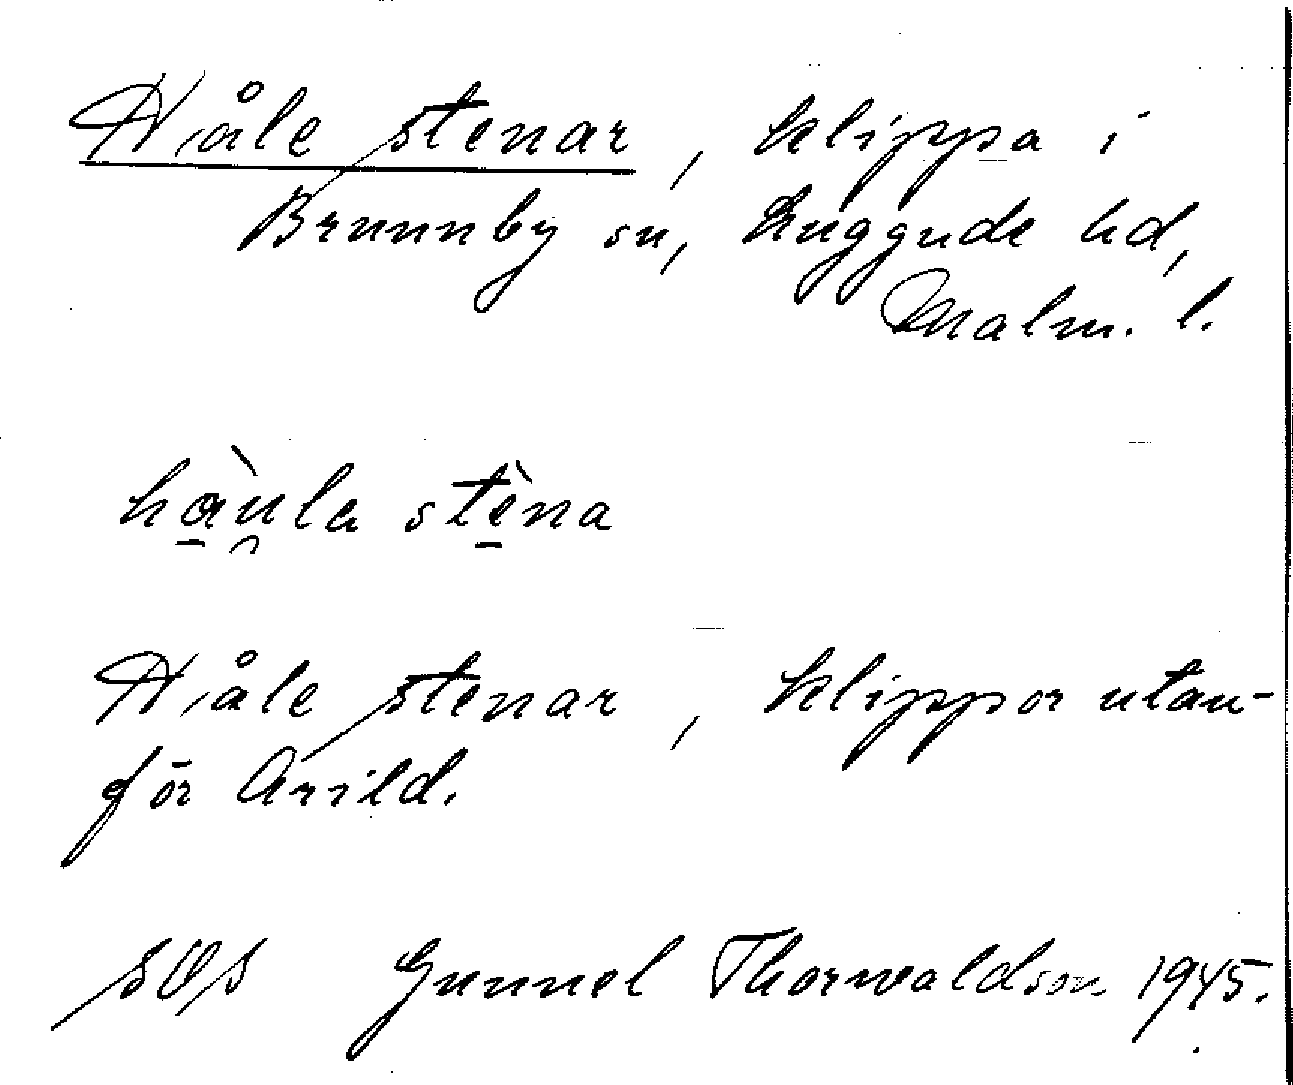 Håle stenar, klippa i
Brunnby sn, Luggude hd,
Malm. l.
hàu̯la stèna
Håle stenar, klippor utan-
för Arild.
SOS Gunnel Thorwaldson 1945.